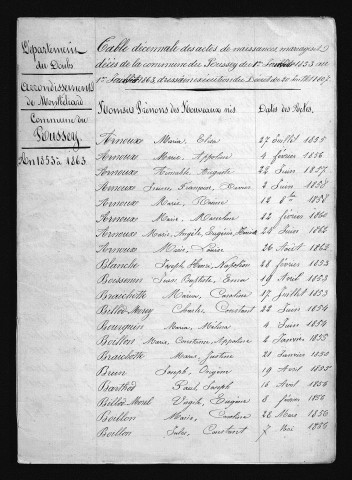 Département
du Doubs
Arrondissement
de Montbéliard
Commune du
Russey
An 1853 à 1863
Table décennale des actes de naissances, mariages et
décès de la commune du Russey du 1er 1853 au
1er 1863, dressée en exécution du Décret du 20 Juillet 1807.
Noms et Prénoms des Nouveaux nés. Dates des Actes.
Arnoux Maria 27 Juillet 1855
Arnoux Marie, Appoline 4 février 1856
Arnoux Aimable, Auguste 22 Juin 1857
Arnoux François, 2 Juin 1858
Arnoux Marie, 12 8bre 1858
Arnoux Marie, 12 février 1860
Arnoux Marie, Angèle, Eugénie, 28 Juin 1862
Arnoux Marie, Louise 26 Août 1862
Blanche Joseph, Napoléon 28 février 1853
Boissenin Jean, Baptiste, 19 Avril 1853
Braichotte Maria, Caroline 17 Juillet 1853
Billod-Morel Charles, Constant 22 Juin 1854
Bourquin Maria, 4 Juin 1854
Boillon Marie, Constance, Appoline 2 Janvier 1855
Braichotte Marie, Justine 21 Janvier 1850
Brun Joseph, 19 Avril 1855
Barthod Paul, Joseph 16 Avril 1856
Billod-Morel Virgile, Eugène 8 février 1856
Boillon Marie, Caroline 26 Mars 1856
Boillon Jules, Constant 7 Mai 1856